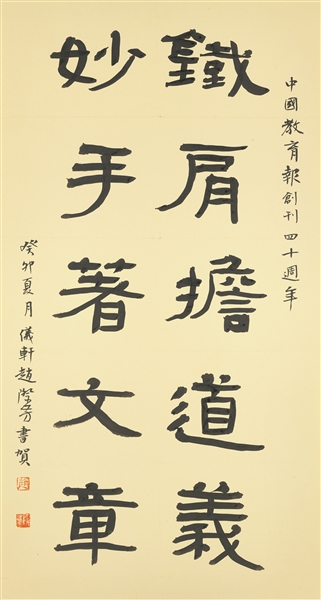 中國教育報創刊四十週年
鐵肩擔道義
妙手著文章
癸卯夏月儀軒趙學芳書賀